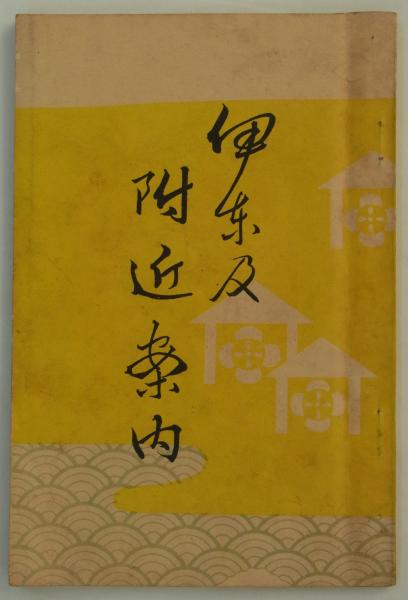 伊东及
附近案内